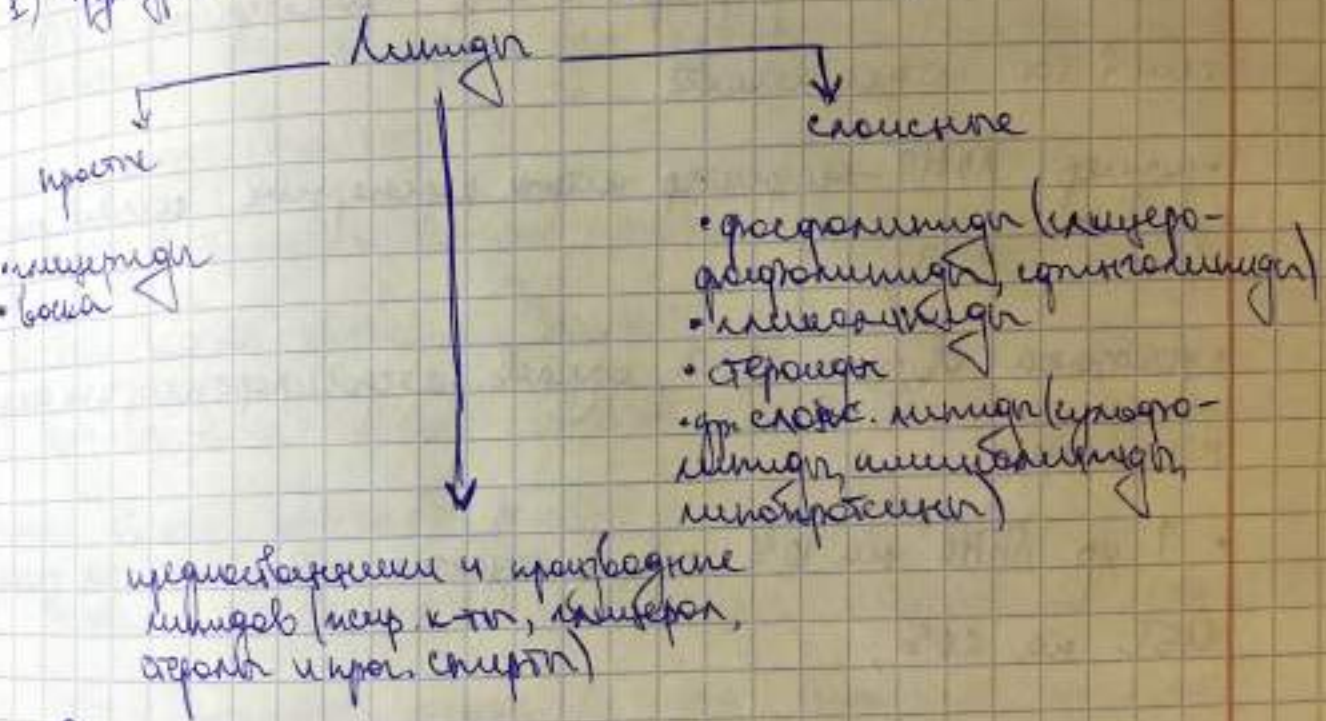 1)
Липиды
простые
сложные
• глицериды
• воска
• фосфолипиды (глицеро-
фосфолипиды, сфинголипиды)
• гликолипиды
• стероиды
• др. слож. липиды (сульфо-
липиды, аминолипиды,
липопротеины)
предшественники и производные
липидов (жир. к-ты, глицерол,
стеролы и проч. спирты)